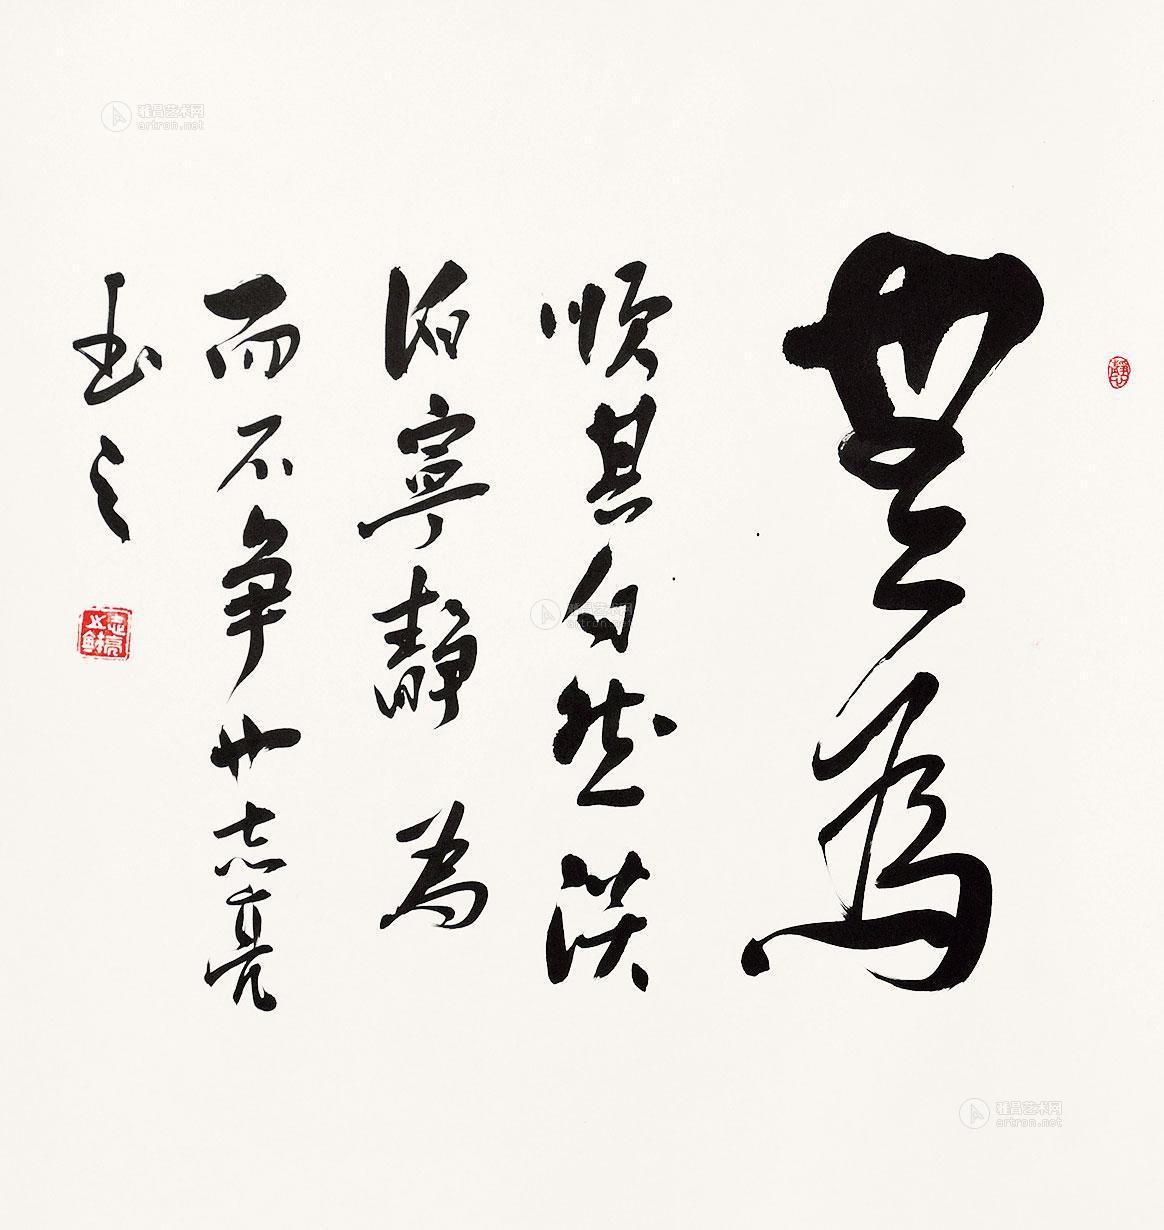 無為
順其自然淡
泊寧靜為
而不争 志亮
书之
雅昌艺术网
artron.net
雅昌艺术网
artron.net
雅昌艺术网
artron.net